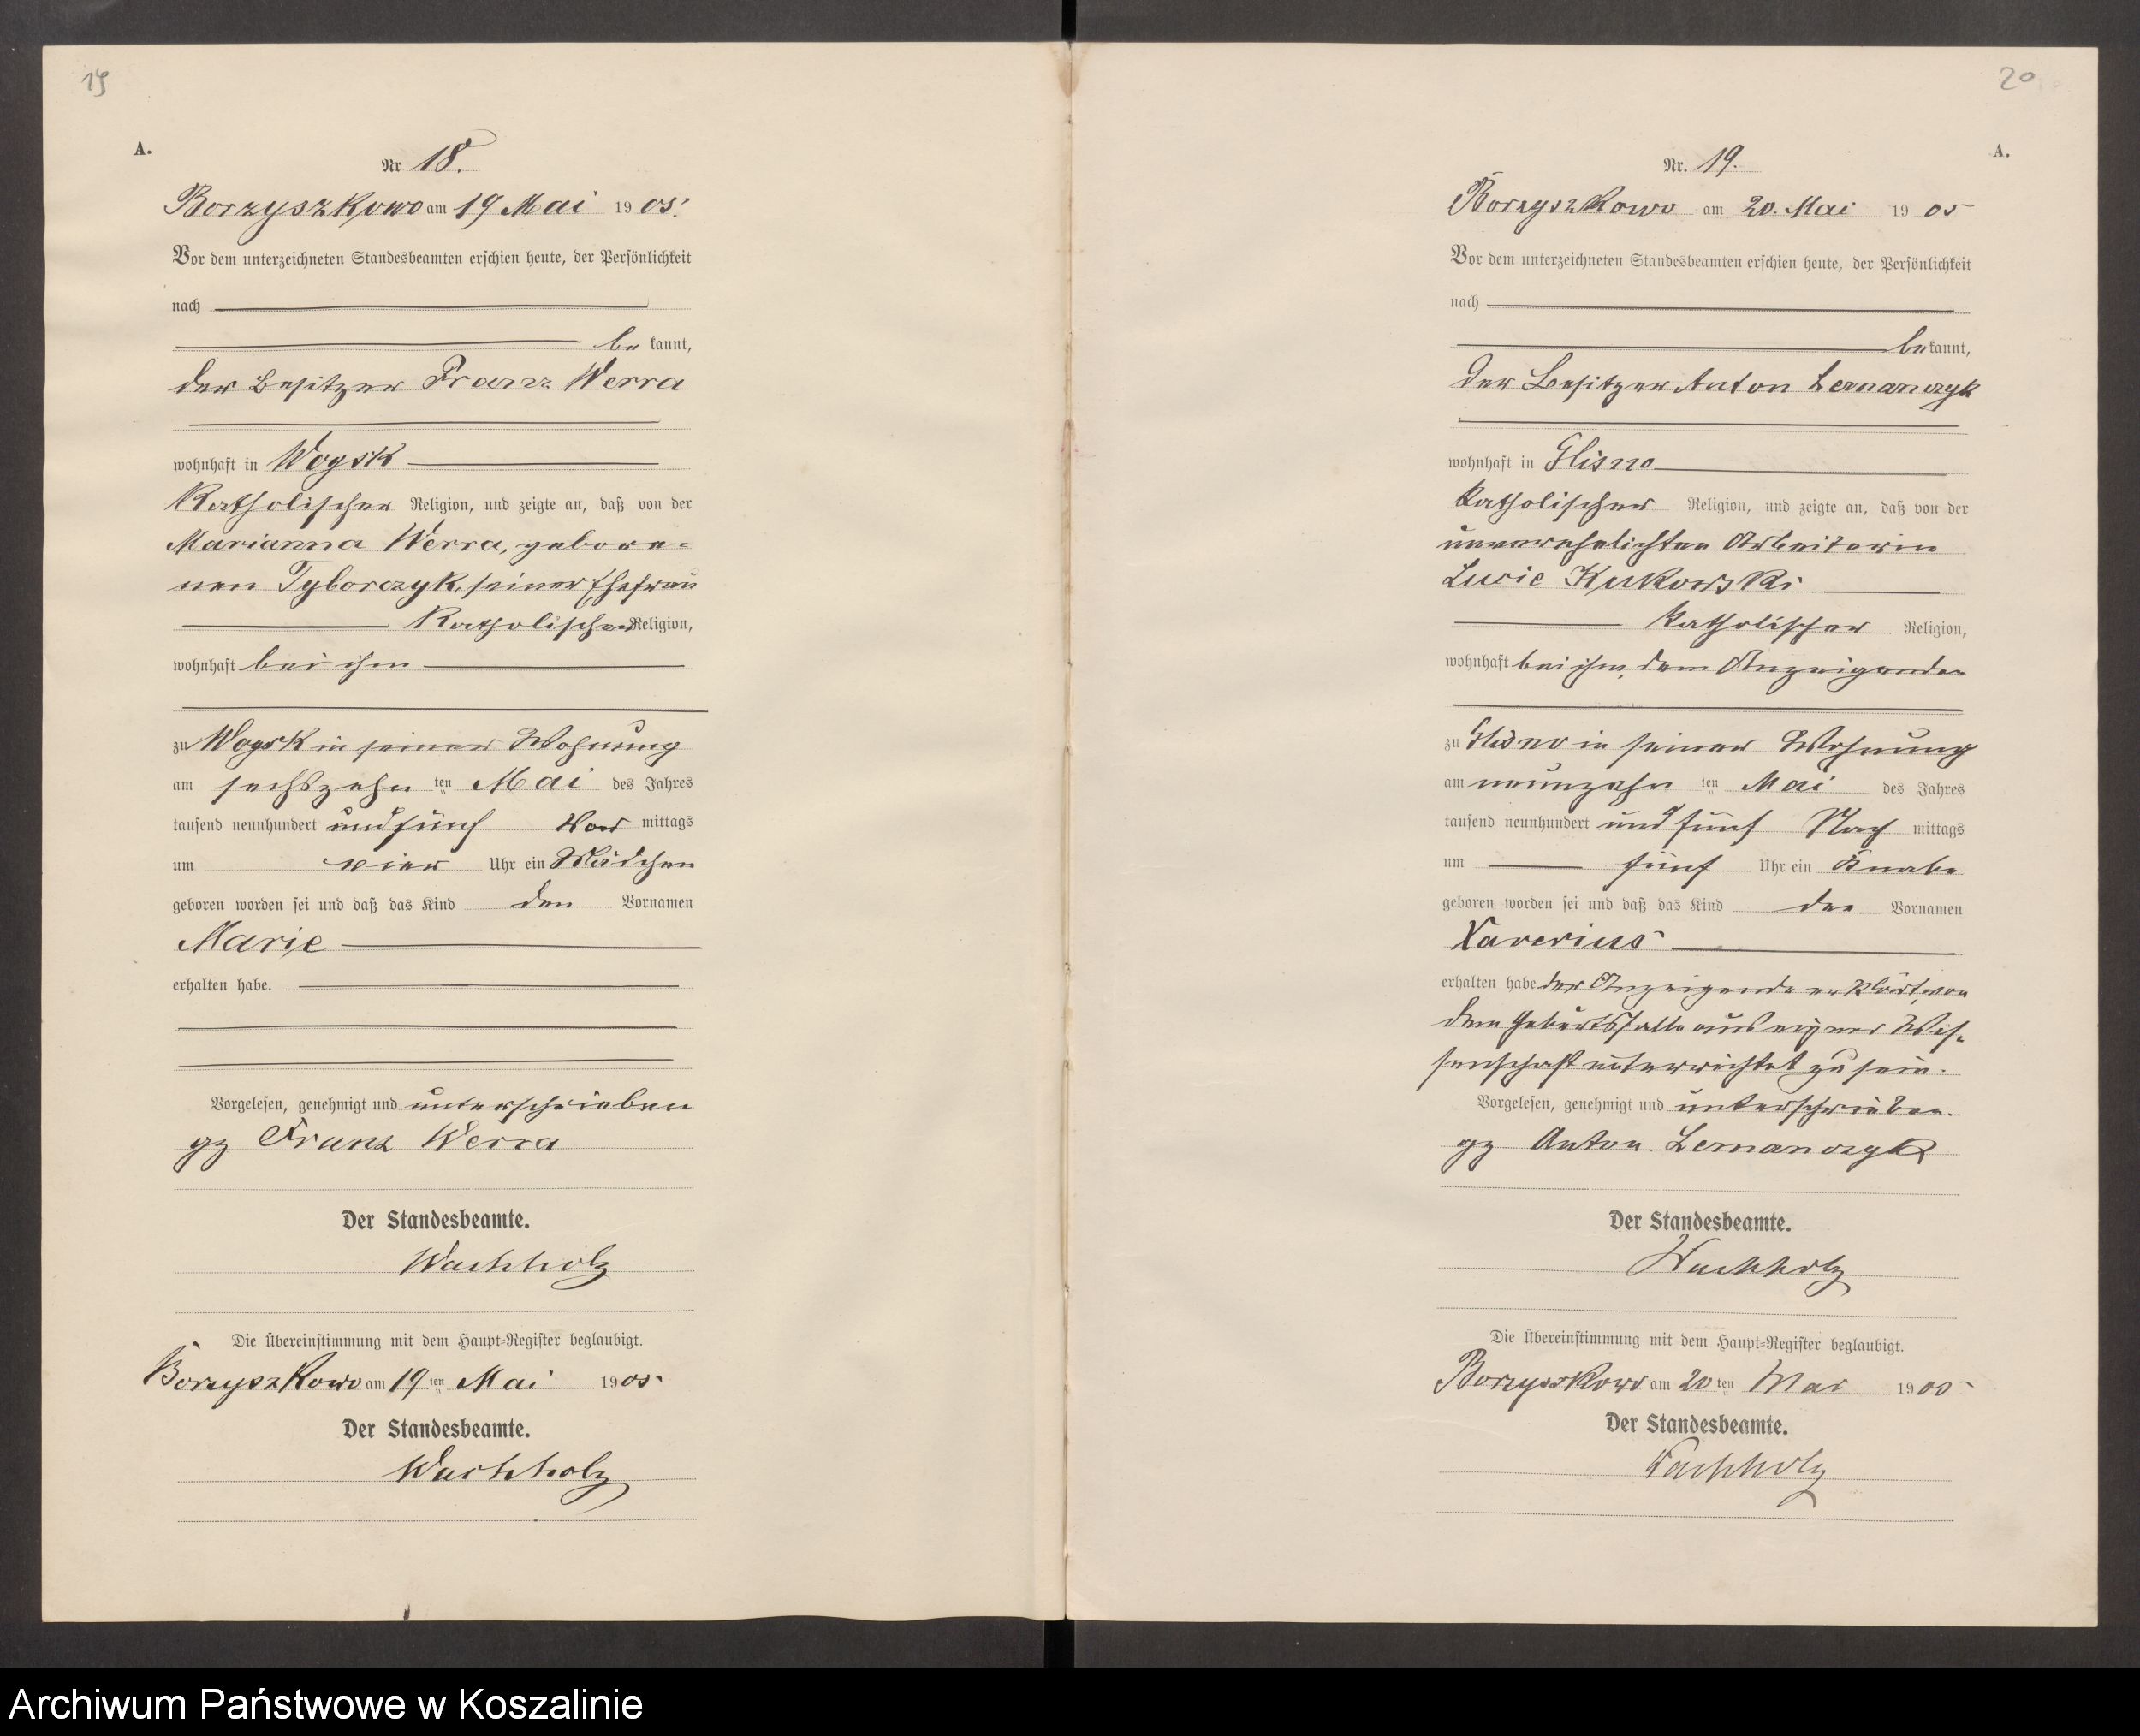 19
A.
Nr 18.
Borzyszkowo am 19. Mai 1905.
Vor dem unterzeichneten Standesbeamten erschien heute, der Persönlichkeit
nach
be kannt,
der Besitzer Franz Werra
wohnhaft in Wogsk
katholischer Religion, und zeigte an, daß von der
Marianna Werra, gebore-
nen Tyborczyk, seiner Ehefrau
katholischer Religion,
wohnhaft bei ihm
zu Wogsk in seiner Wohnung
am sechszehn ten Mai des Jahres
tausend neunhundert und fünf Vor mittags
um vier Uhr ein Mädchen
geboren worden sei und daß das Kind den Vornamen
Marie
erhalten habe.
Vorgelesen, genehmigt und unterschrieben
gz Franz Werra
Der Standesbeamte.
Wachholz
Die Übereinstimmung mit dem Haupt-Register beglaubigt.
Borzyszkowo am 19 ten Mai 1905
Der Standesbeamte.
Wachholz
20
A.
Nr. 19.
Borzyszkowo am 20. Mai 1905
Vor dem unterzeichneten Standesbeamten erschien heute, der Persönlichkeit
nach
be kannt,
der Besitzer Anton Lemanczyk
wohnhaft in Glisno
katholischer Religion, und zeigte an, daß von der
unverehelichten Arbeiterin
Lucie Kukowski
katholischer Religion,
wohnhaft bei ihm, dem Anzeigenden
zu Glisno in seiner Wohnung
am neunzehn ten Mai des Jahres
tausend neunhundert und fünf Nach mittags
um fünf Uhr ein Knabe
geboren worden sei und daß das Kind den Vornamen
Xaverius
erhalten habe der Anzeigende erklärt, von
dem Geburtsfalle aus eigner Wis-
senschaft unterrichtet zu sein.
Vorgelesen, genehmigt und unterschrieben.
gz Anton Lemanczyk
Der Standesbeamte.
Wachholz
Die Übereinstimmung mit dem Haupt-Register beglaubigt.
Borzyszkowo am 20 ten Mai 1905
Der Standesbeamte.
Wachholz
Archiwum Państwowe w Koszalinie